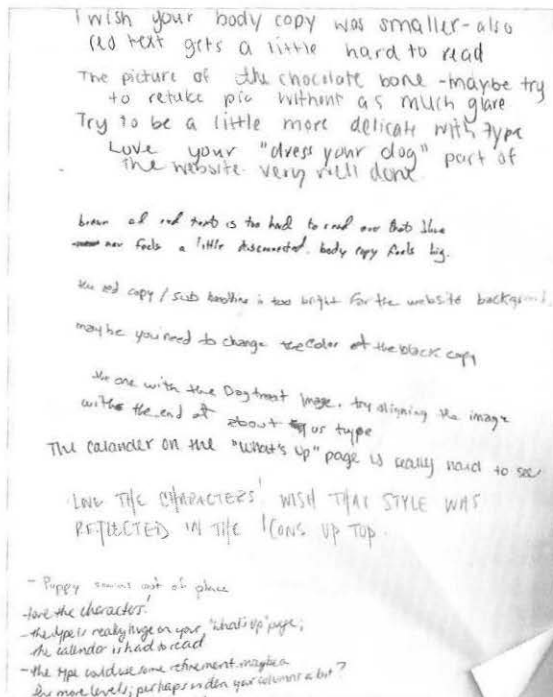 I wish your body copy was smaller - also
red text gets a little hard to read
The picture of the chocolate bone - maybe try
to retake pic without as much glare
Try to be a little more delicate with type
Love your "dress your dog" part of
the website. very well done.
brown and red text is too hard to read over that blue
nav feels a little disconnected. body copy feels big.
the red copy / sub headline is too bright for the website background
maybe you need to change the color of the black copy
the one with the Dog treat image, try aligning the image
with the end of about us type
The calander on the "what's up" page is really hard to see
LOVE THE CHARACTERS! WISH THAT STYLE WAS
REFLECTED IN THE ICONS UP TOP.
- Puppy seems out of place
- love the characters!
- the type is really huge on your "what's up" page;
the calender is had to read
- the type could use some refinement maybe a
few more levels; perhaps widen your columns a bit?